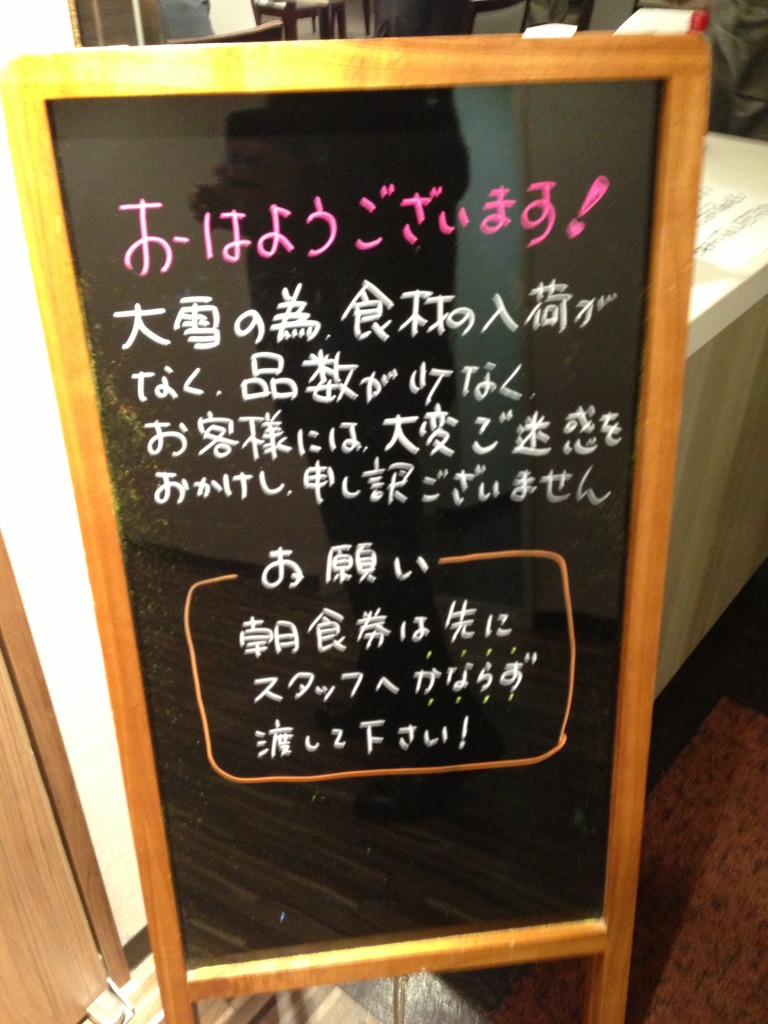 おはようございます!
大雪の為、食材の入荷が
なく、品数が少なく、
お客様には、大変ご迷惑を
おかけし、申し訳ございません
お願い
朝食券は先に
スタッフへかならず
渡して下さい!